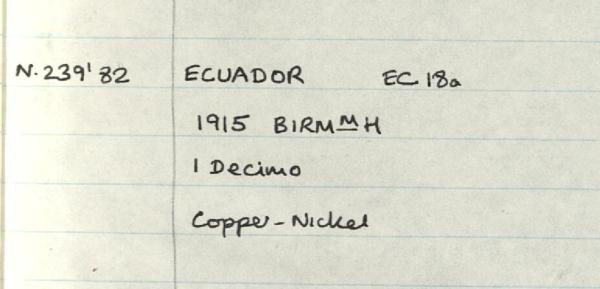 N.239'82 ECUADOR EC 18a
1915 BIRMᴹH
1 Decimo
Copper-Nickel